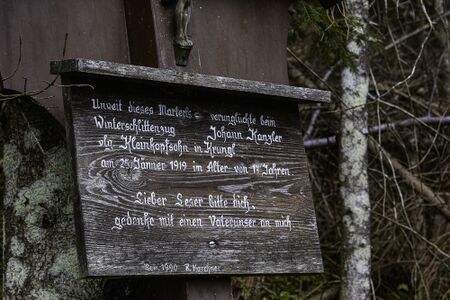 Unweit dieses Marterls verunglückte beim
Winterschlittenzug Johann Kanzler
vlg Kleinkopfsohn in Krungl
am 25 Jänner 1919 in Alter von 14 Jahren
Lieber Leser bitte dich,
gedenke mit einen Vaterunser an mich
1990 R.